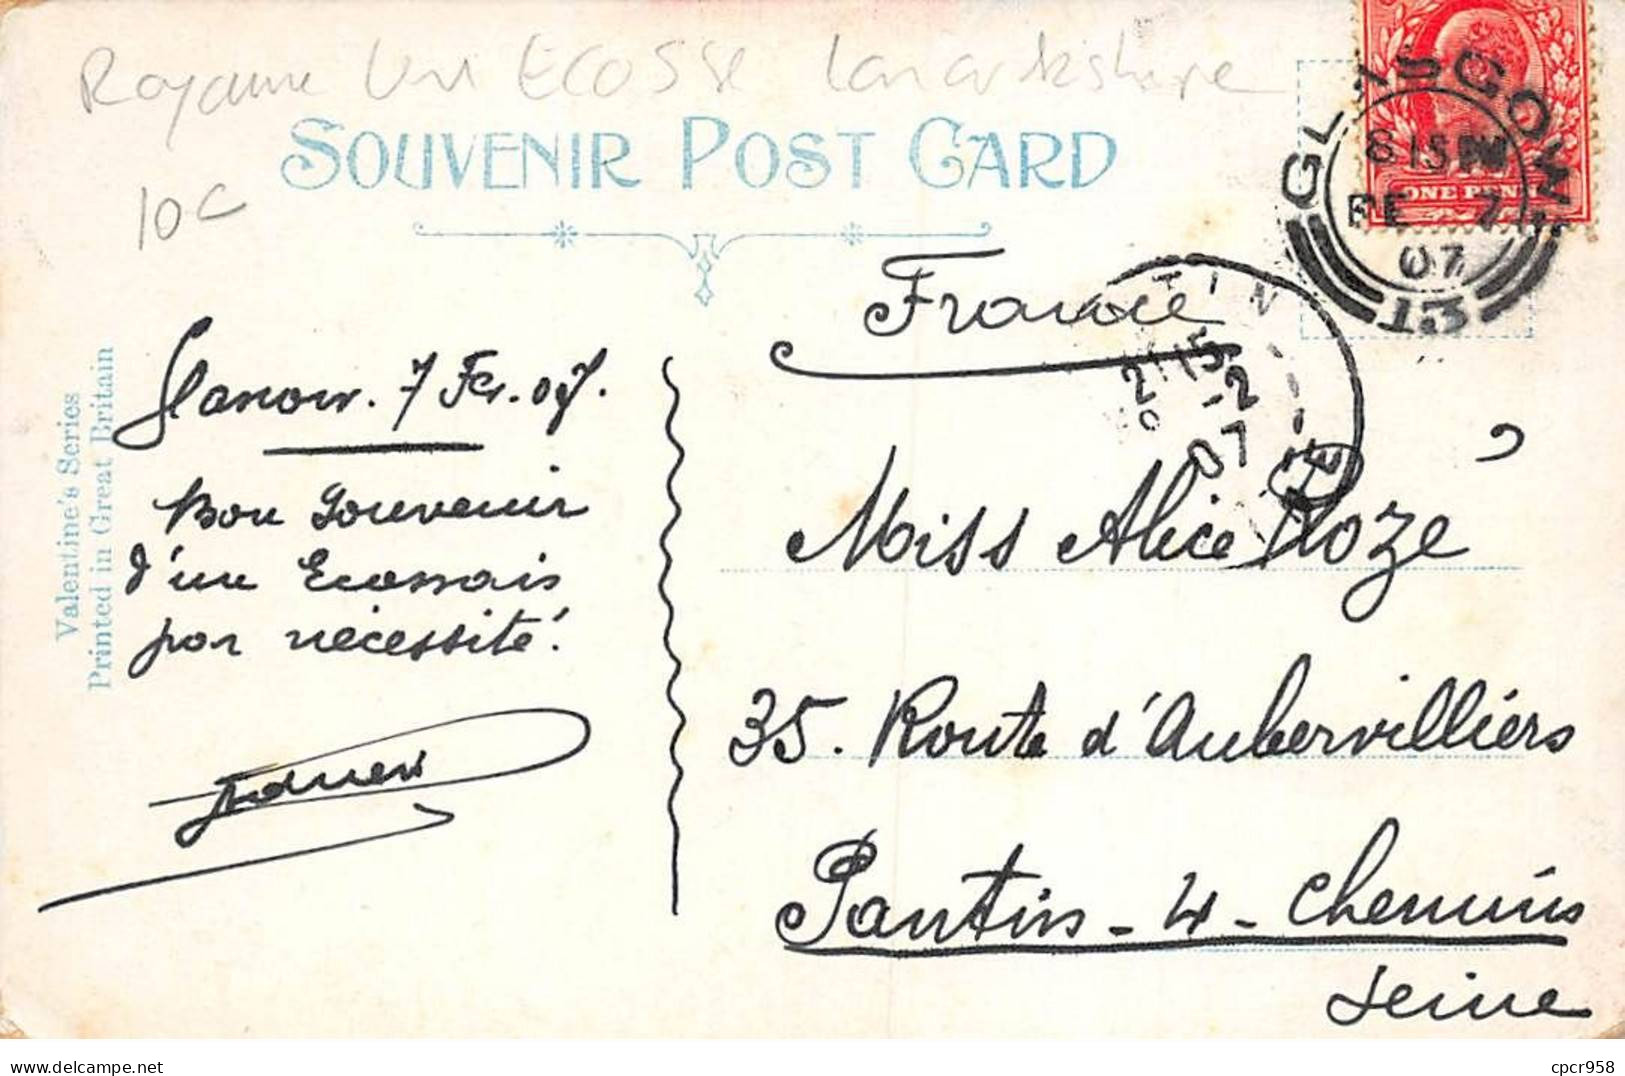 Royaume Uni ECOSSE Lanarkshire
SOUVENIR POST CARD
10c
GLASGOW
8 15 PM
FE 7
07
13
ONE PENNY
France
TIN
15
-2
07
Glasgow. 7 Fév. 07.
Bon Souvenir
d'un Ecossais
par nécessité.
Valentine's Series
Printed in Great Britain
Miss Alice Rozé
35. Route d'Aubervilliers
Pantin - 4 - Chemins
Seine
cpcr958